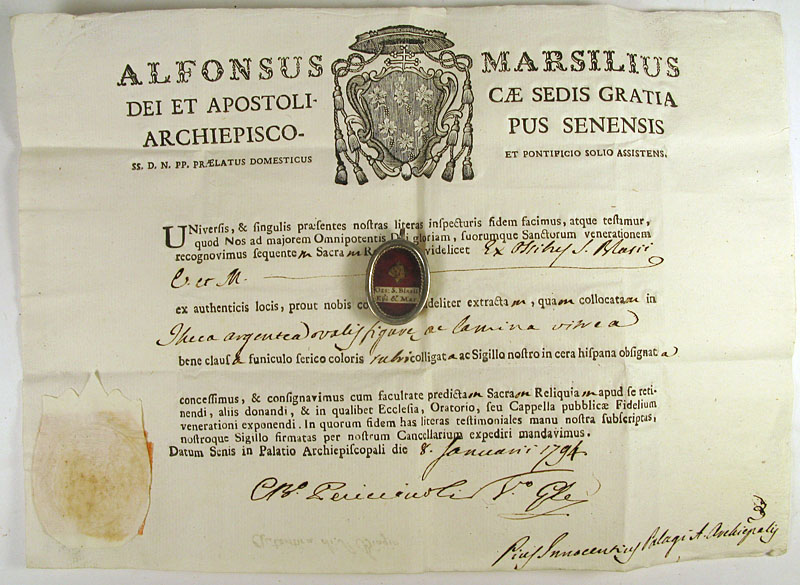 ALFONSUS MARSILIUS
DEI ET APOSTOLI- CÆ SEDIS GRATIA
ARCHIEPISCO- PUS SENENSIS
SS. D. N. PP. PRÆLATUS DOMESTICUS ET PONTIFICIO SOLIO ASSISTENS.
UNiversis, & singulis præsentes nostras literas inspecturis fidem facimus, atque testamur,
quod Nos ad majorem Omnipotentis Dei gloriam, suorumque Sanctorum venerationem
recognovimus sequentem Sacram R videlicet Ex Ossibus S. Blasii
E. et M.
Oss: S. Blasii
Epi & Mar
ex authenticis locis, prout nobis co fideliter extractam, quam collocatam in
Theca argentea ovalis figuræ ac lamina vitrea
bene clausa funiculo serico coloris rubri colligata ac Sigillo nostro in cera hispana obsignata
concessimus, & consignavimus cum facultate predictam Sacram Reliquiam apud se reti-
nendi, aliis donandi, & in qualibet Ecclesia, Oratorio, seu Cappella pubblicæ Fidelium
venerationi exponendi. In quorum fidem has literas testimoniales manu nostra subscriptas,
nostroque Sigillo firmatas per nostrum Cancellarium expediri mandavimus.
Datum Senis in Palatio Archiepiscopali die 8. Januarii 1794
Pius Innocentius Palagi A. Archiepalis